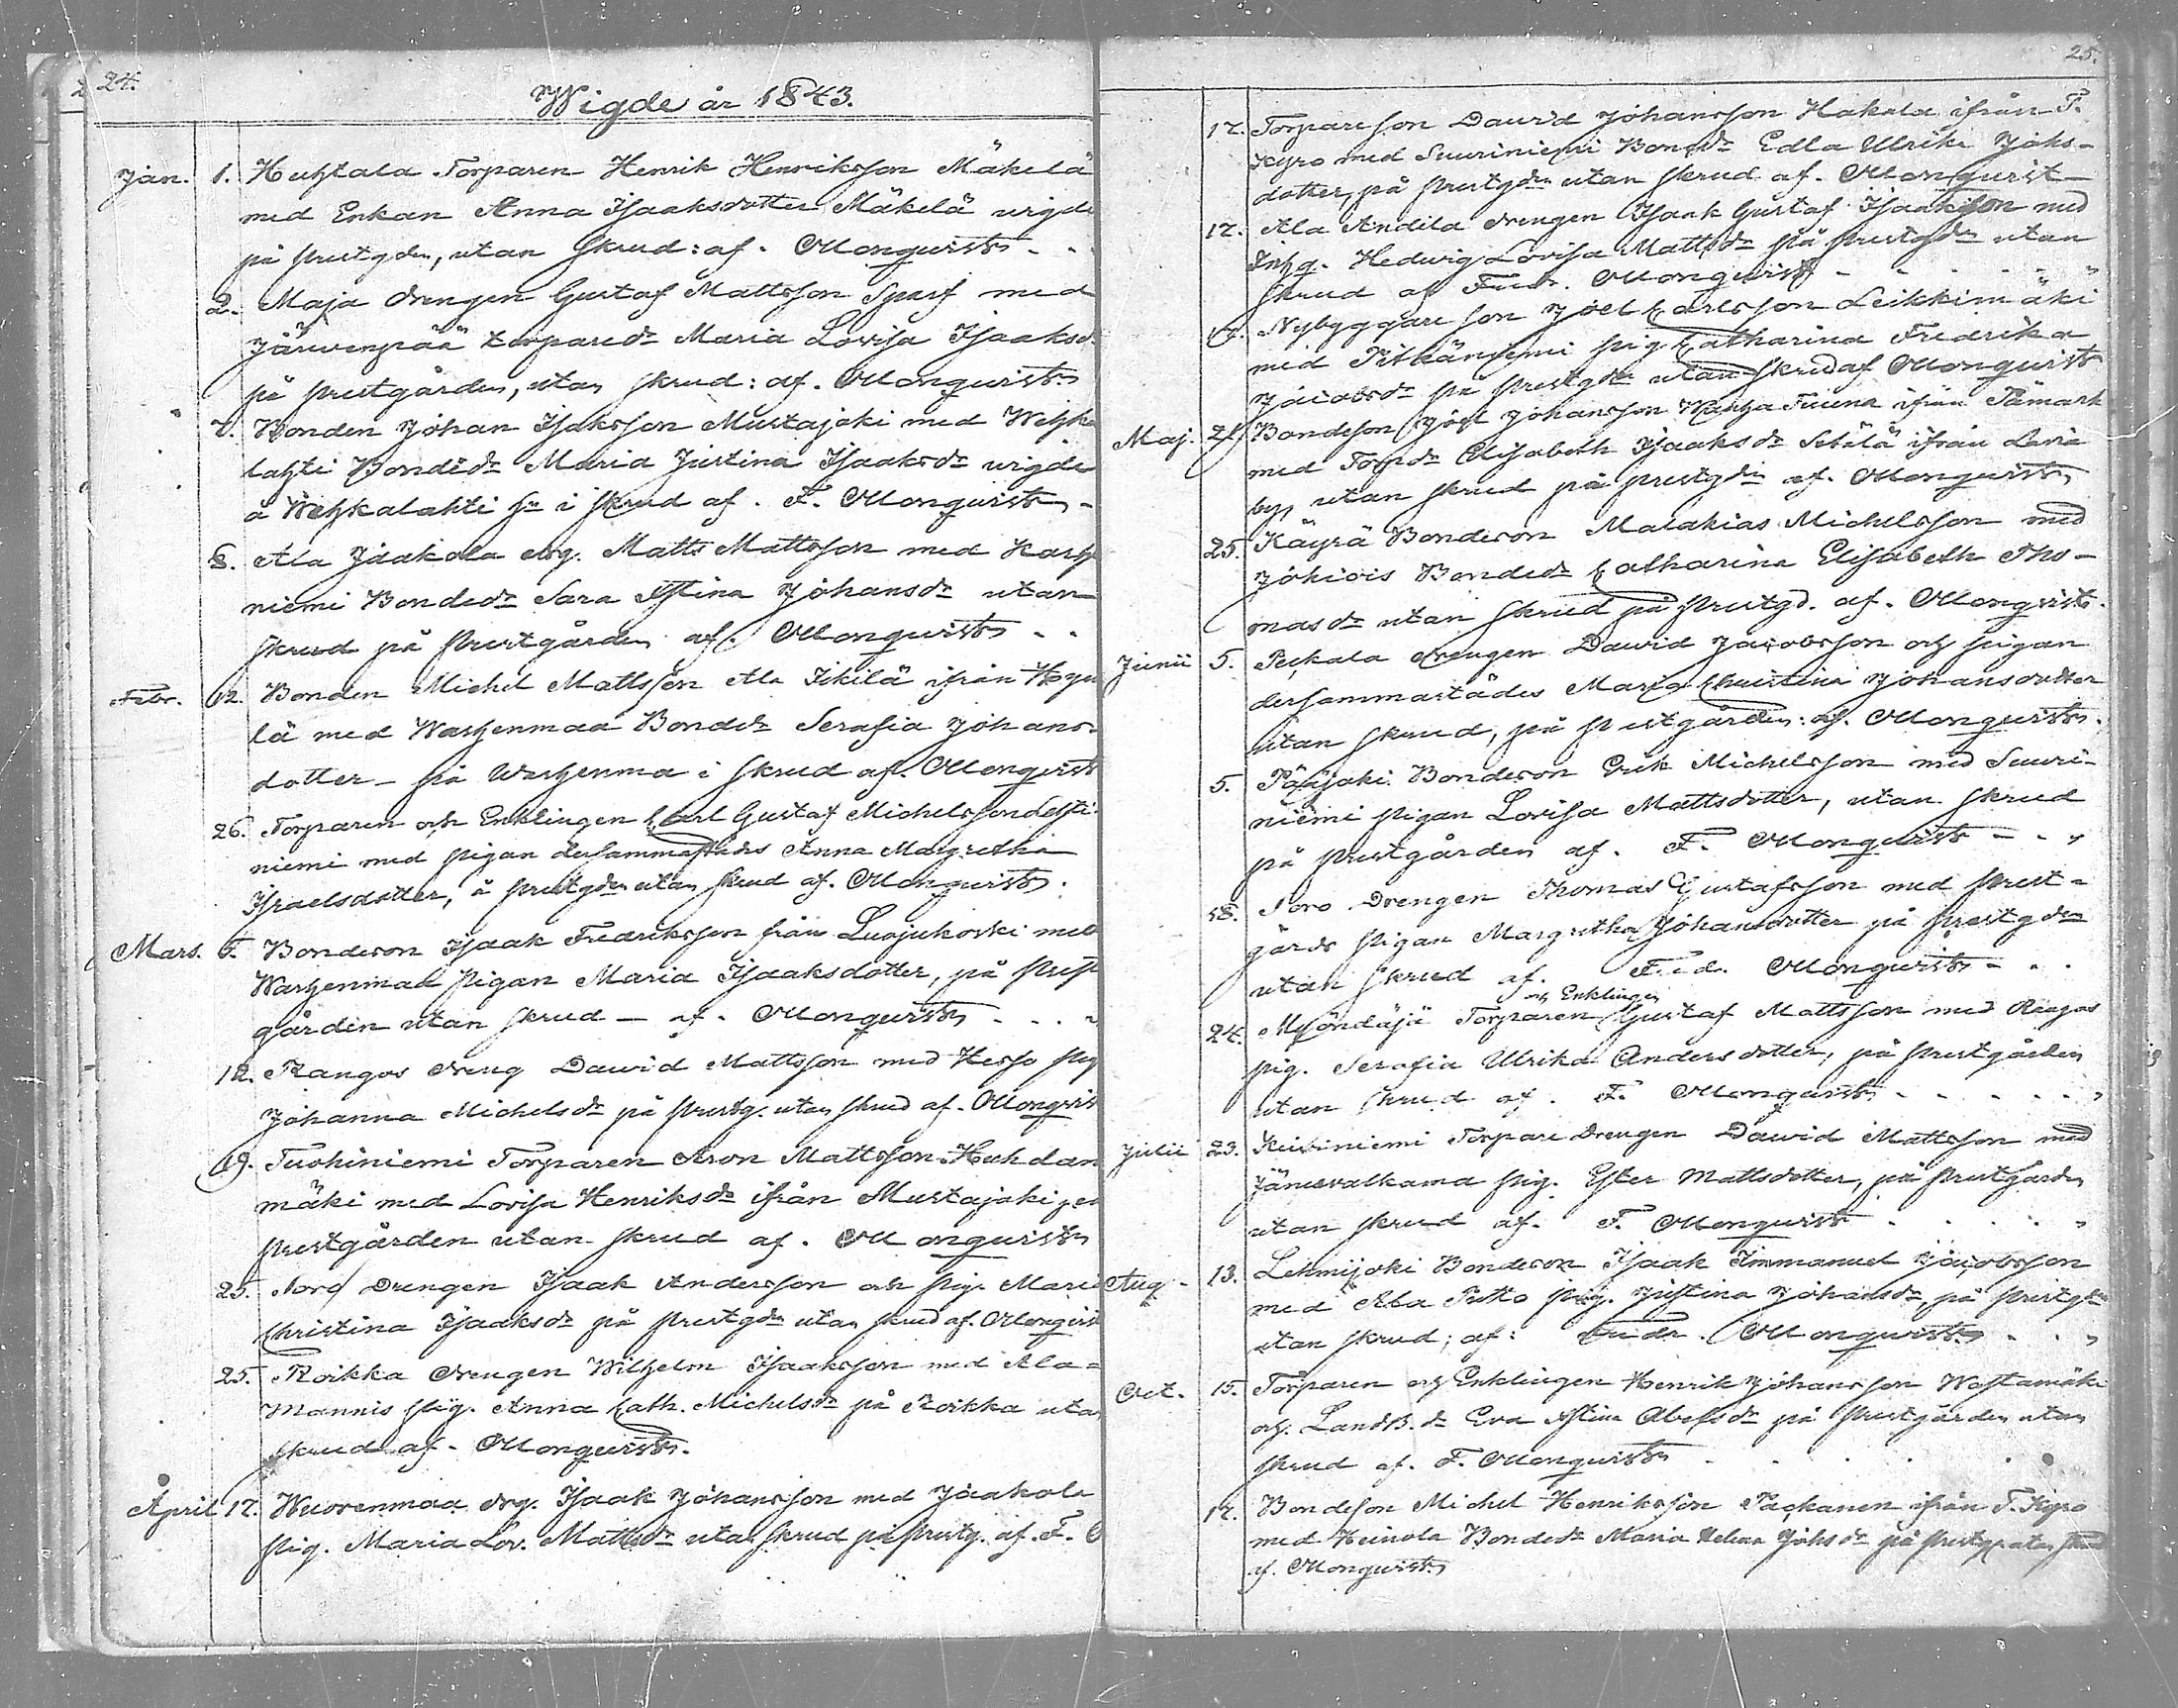 24.
Wigde år 1843.
Jan. 1. Huhtala Torparen Henrik Henriksson Mäkelä
med Enkan Anna Isaaksdotter Mäkelä vigde
på prestgdn, utan skrud: af. Monqvist
2. Maja drengen Gustaf Mattsson Sparf med
Järvenpää torpared:r Maria Lovisa Isaaksd:
på prestgården, utan skrud: af. Monqvist
Bonden Johan Isaksson Mustajoki med Wehka
lahti Bonded:r Maria Justina Isaaksd:r vigde
å Wehkalahti i skrud af. F. Monqvist
8. Ala Jaakola drg. Matts Mattsson med Karh
niemi Bonded:r Sara Stina Johansd:r utan
skrud på Prestgården af. Monqvist
Febr. 12. Bonden Michel Mattsson Ala Ikilä ifrån
lä med Warhenmaa Bonded:r Serafia Johans
dotter på Warhenma i skrud af. Monqvist
26. Torparen och Enklingen Carl Gustaf Michelsson
niemi med pigan dersammastädes Anna Margretha
Israelsdotter, å prestgdn utan skrud af. Monqvist.
Mars. 5. Bondeson Isaak Fredriksson från Luojukoski med
Warhenmaa pigan Maria Isaaksdotter, på prest
gården utan skrud - af. Monqvist
12. Rangos dreng David Mattsson med Herso pig
Johanna Michelsd:r på prestg. utan skrud af. Monqvist
19. Tuohiniemi Torparen Aron Mattsson Huhdan
mäki med Lovisa Henriksd:r ifrån Mustajoki
prestgården utan skrud af. Monqvist
25. Noro Drengen Isaak Andersson och pig. Maria
Christina Isaaksd:r på prestgdn utan skrud af. Monqvist
25. Roikka drengen Wilhelm Isaaksson med Ala-
Mannis pig. Anna Cath. Michelsd:r på Roikka utan
skrud af. Monqvist.
April 17. Wuorenmaa drg. Isaak Johansson med Jaakola
pig. Maria Lov. Mattsd:r utan skrud på prestg. af. F.
25.
17. Torpareson David Johansson Hakala ifrån T.
Kyro med Suuriniemi Bonded:r Edla Ulrika Johs-
dotter, på prestgdn utan skrud af. Monqvist
17. Ala Andila drengen Isaak Gustaf Isaaksson med
Inhg. Hedvig Lovisa Mattsd:r på prestgdn utan
skrud af Fredr. Monqvist
Nybyggareson Joel Carlsson Leikkimäki
med Pitkäniemi pig. Catharina Fredrika
Jacobsd:r på prestgdn utan skrud af Monqvist
Maj. 21. Bondeson Joel Johansson ifrån Påmark
med Torpd:r Elisabeth Isaaksd:r Setälä ifrån Lavia
by, utan skrud på prestgdn af. Monqvist
25. Käyrä Bondeson Malakias Michelsson med
Johiois Bonded:r Catharina Elisabeth Tho-
masd:r utan skrud på prestgd. af. Monqvist.
Junii 5. Peckala drengen David Jacobsson och pigan
dersammastädes Maria Christina Johansdotter
utan skrud, på prestgården: af. Monqvist.
5. Pääjoki Bondeson Erik Michelsson med Suuri-
niemi pigan Lovisa Mattsdotter, utan skrud
på prestgården af. F. Monqvist
18. Noro Drengen Thomas Gustafsson med prest-
gårds pigan Margretha Johansdotter på prestgdn
utan skrud af. Fred. Monqvist
och Enklingen
24. Myöndäjä Torparen Gustaf Mattsson med Rangos
pig. Serafia Ulrika Andersdotter, på prestgården
utan skrud af. F. Monqvist
Julii 23. Kiviniemi Torpare drengen David Mattsson med
Jänesvalkama pig. Ester Mattsdotter, på Prestgården
utan skrud af. F. Monqvist
Aug. 13. Lehmijoki Bondeson Isaak Immanuel Jacobsson
med Ala Putto pig. Justina Johansd:r på prestgdn
utan skrud; af: Fredr. Monqvist
Oct. 15. Torparen och Enklingen Henrik Johansson Wastamäki
och Landb.d:r Eva Stina Abelsd:r på prestgården utan
skrud af. F. Monqvist
17. Bondeson Michel Henriksson Packanen ifrån T. Kyro
med Heinola Bonded:r Maria Helena Johsd:r på prestg utan skrud
af. Monqvist